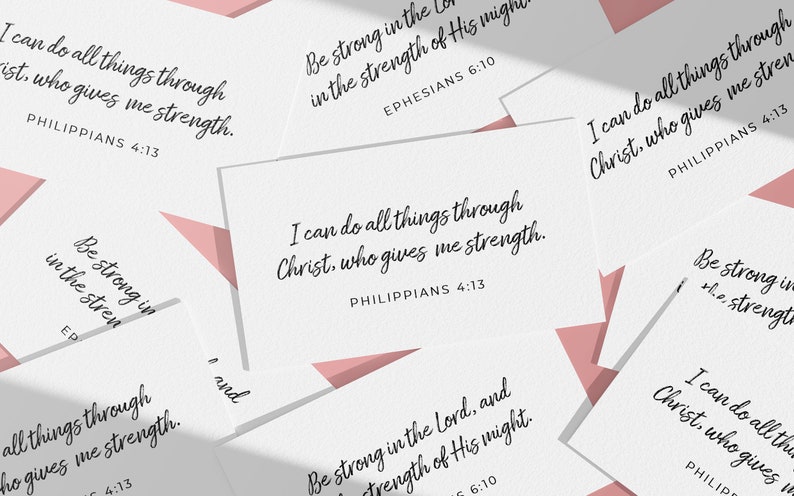 I can do all things through
Christ, who gives me strength.
PHILIPPIANS 4:13
Be strong in the Lord,
in the strength of His might.
EPHESIANS 6:10
I can do all things through
Christ, who gives me strength.
PHILIPPIANS 4:13
I can do all things through
Christ, who gives me strength.
PHILIPPIANS 4:13
Be strong in
in the stren
EP
and
Be strong in the
the strength
all things through
who gives me strength.
PHILIPPIANS 4:13
Be strong in the Lord, and
strength of His might.
6:10
I can do all things
Christ, who gives me
PHILIPP